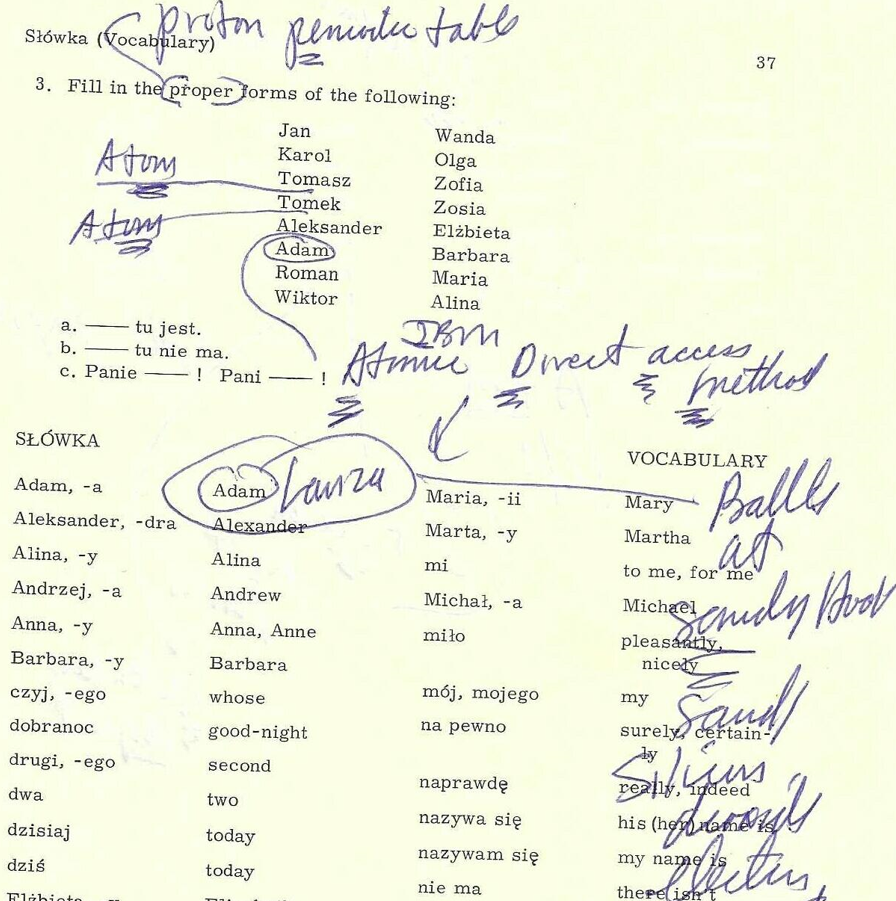 proton periodic table
Słówka (Vocabulary)
37
3. Fill in the proper forms of the following:
Jan Wanda
Karol Olga
Atom
Tomasz Zofia
Tomek Zosia
Atom
Aleksander Elżbieta
Adam Barbara
Roman Maria
Wiktor Alina
a. —— tu jest.
b. —— tu nie ma.
c. Panie —— ! Pani —— !
IBM
Atomic Direct access
method
SŁÓWKA
VOCABULARY
Adam, -a Adam Maria, -ii Mary
Aleksander, -dra Alexander Marta, -y Martha
at
Alina, -y Alina mi to me, for me
Andrzej, -a Andrew Michał, -a Michael
Sandy
Anna, -y Anna, Anne miło pleasantly,
nicely
Barbara, -y Barbara
czyj, -ego whose mój, mojego my
Sand
dobranoc good-night na pewno surely, certain-
ly
drugi, -ego second
naprawdę really, indeed
dwa two
nazywa się his (her) name is
dzisiaj today
nazywam się my name is
dziś today
nie ma there isn't